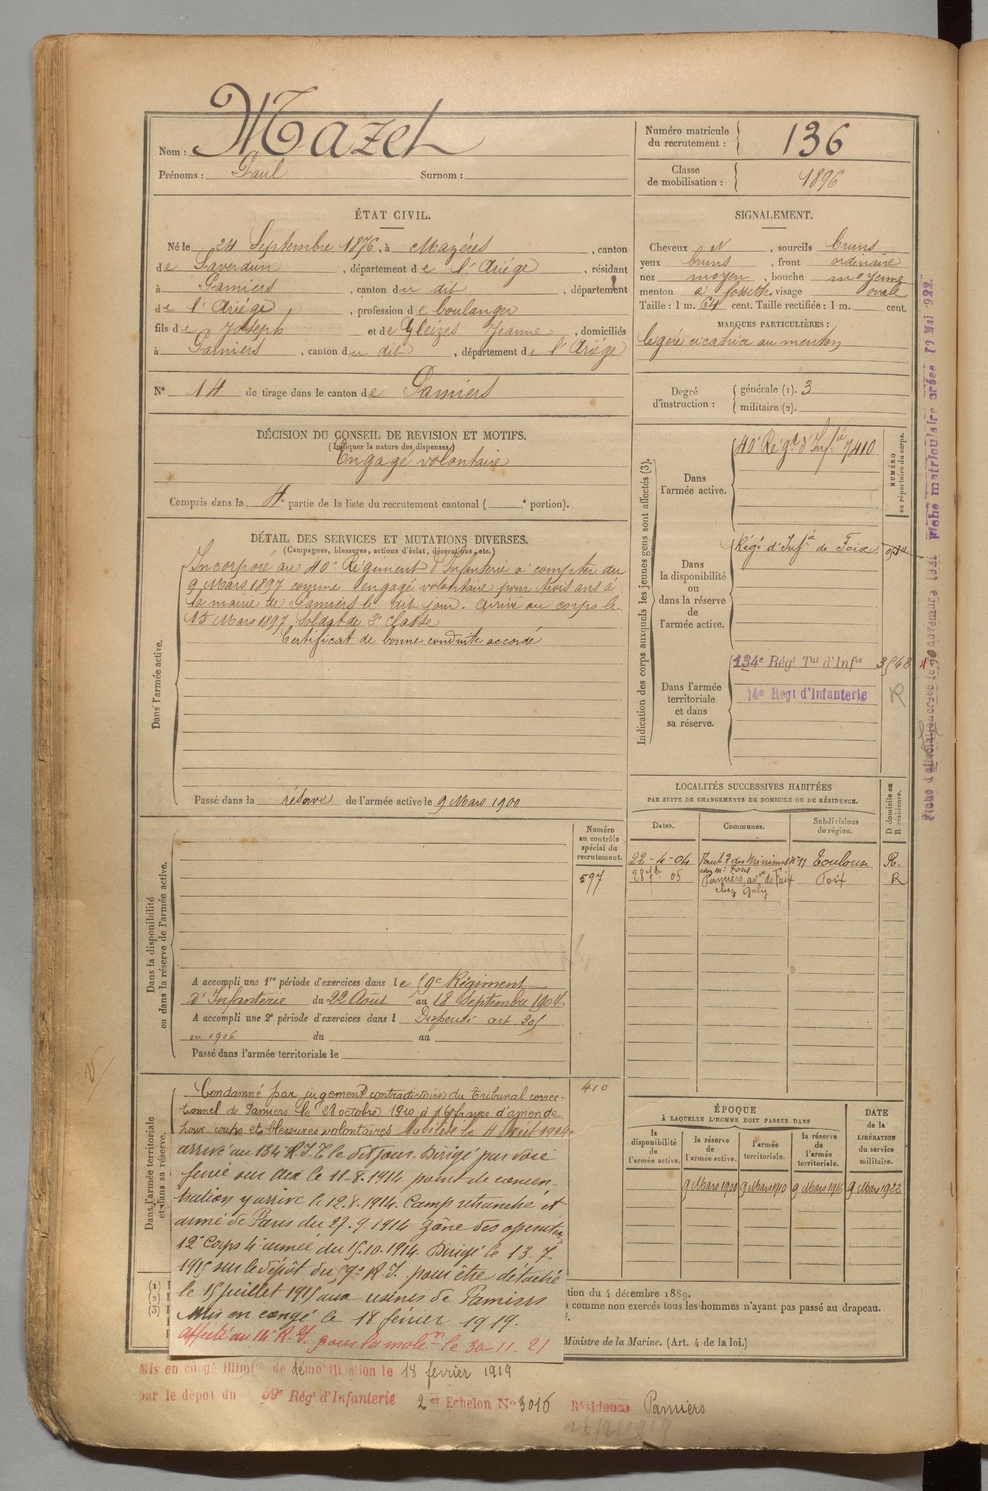 Nom : Mazet
Prénoms : Paul Surnom :
Numéro matricule du recrutement : 136
Classe de mobilisation : 1896
ÉTAT CIVIL.
Né le 24 Septembre 1876, à Mazéres, canton
de Saverdun, département de l'Ariége, résidant
à Pamiers, canton du dit, département
de l'Ariége, profession de boulanger
fils de Joseph et de Gleizes Jeanne, domiciliés
à Pamiers, canton du dit, département de l'Ariége
N° 14 de tirage dans le canton de Pamiers
SIGNALEMENT.
Cheveux et, sourcils bruns
yeux bruns, front ordinaire
nez moyen, bouche moyenne
menton à fossette, visage ovale
Taille : 1 m. 64 cent. Taille rectifiée : 1 m. cent.
MARQUES PARTICULIÈRES :
légère cicatrice au menton
Degré d'instruction : générale (1). 3
militaire (2).
DÉCISION DU CONSEIL DE REVISION ET MOTIFS.
(Indiquer la nature des dispenses)
Engagé volontaire
Compris dans la 4e partie de la liste du recrutement cantonal ( e portion).
DÉTAIL DES SERVICES ET MUTATIONS DIVERSES.
(Campagnes, blessures, actions d'éclat, décorations, etc.)
Dans l'armée active.
Incorporé au 40e Régiment d'Infanterie à compter du
9 Mars 1897 comme engagé volontaire pour trois ans à
la mairie de Pamiers le dit jour. Arrivé au corps le
15 Mars 1897, Soldat de 2e classe
Certificat de bonne conduite accordé
Passé dans la réserve de l'armée active le 9 Mars 1900
Indication des corps auxquels les jeunes gens sont affectés (3).
NUMÉRO au répertoire du corps.
Dans l'armée active.
40e Régt d'Infie 7410
Dans la disponibilité ou dans la réserve de l'armée active.
Régt d'Infie de Foix
Dans l'armée territoriale et dans sa réserve.
134e Régt Tal d'Infie 3548
14e Régt d'Infanterie R
LOCALITÉS SUCCESSIVES HABITÉES
PAR SUITE DE CHANGEMENTS DE DOMICILE OU DE RÉSIDENCE.
Dates. Communes. Subdivisions de région. D domicile ou R résidence.
22-4-04 Toulon R.
05 Pamiers av. de Foix Foix R
chez Galy
Dans la disponibilité ou dans la réserve de l'armée active.
Numéro au contrôle spécial du recrutement.
597
A accompli une 1re période d'exercices dans le 59e Régiment
d'Infanterie du 22 Août au 18 Septembre 1904
A accompli une 2e période d'exercices dans l Dispensé art 205
en 1906 du au
Passé dans l'armée territoriale le
Dans l'armée territoriale et dans sa réserve.
410
Condamné par jugement contradictoire du Tribunal correc-
tionnel de Pamiers le 28 octobre 1910 à 16 francs d'amende
pour coups et blessures volontaires Mobilisé le 4 Août 1914
arrivé au 134 R.I.T. le dit jour. Dirigé par voie
ferrée sur Aix le 11-8-1914 point de concen-
tration y arrive le 12.8.1914. Camp retranché et
armé de Paris du 27.9.1914 Zône des opérations
12e Corps 4e armée du 15.10.1914. Dirigé le 13-7-
1915 sur le dépôt du 59e R.I. pour être détaché
le 15 juillet 1915 aux usines de Pamiers
Mis en congé le 18 février 1919.
Affecté au 14e R.I. pour la mobon le 30-11-21
ÉPOQUE
À LAQUELLE L'HOMME DOIT PASSER DANS
la disponibilité de l'armée active. la réserve de l'armée active. l'armée territoriale. la réserve de l'armée territoriale.
DATE de la LIBÉRATION du service militaire.
9 Mars 1900 9 Mars 1910 9 Mars 1916 9 Mars 1922
(1)
(2)
(3)
tion du 4 décembre 1889.
comme non exercés tous les hommes n'ayant pas passé au drapeau.
Ministre de la Marine. (Art. 4 de la loi.)
Mis en congé illimité de démobilisation le 18 février 1919
par le dépôt du 59e Régt d'Infanterie 2er Echelon N° 3016 Résidence Pamiers